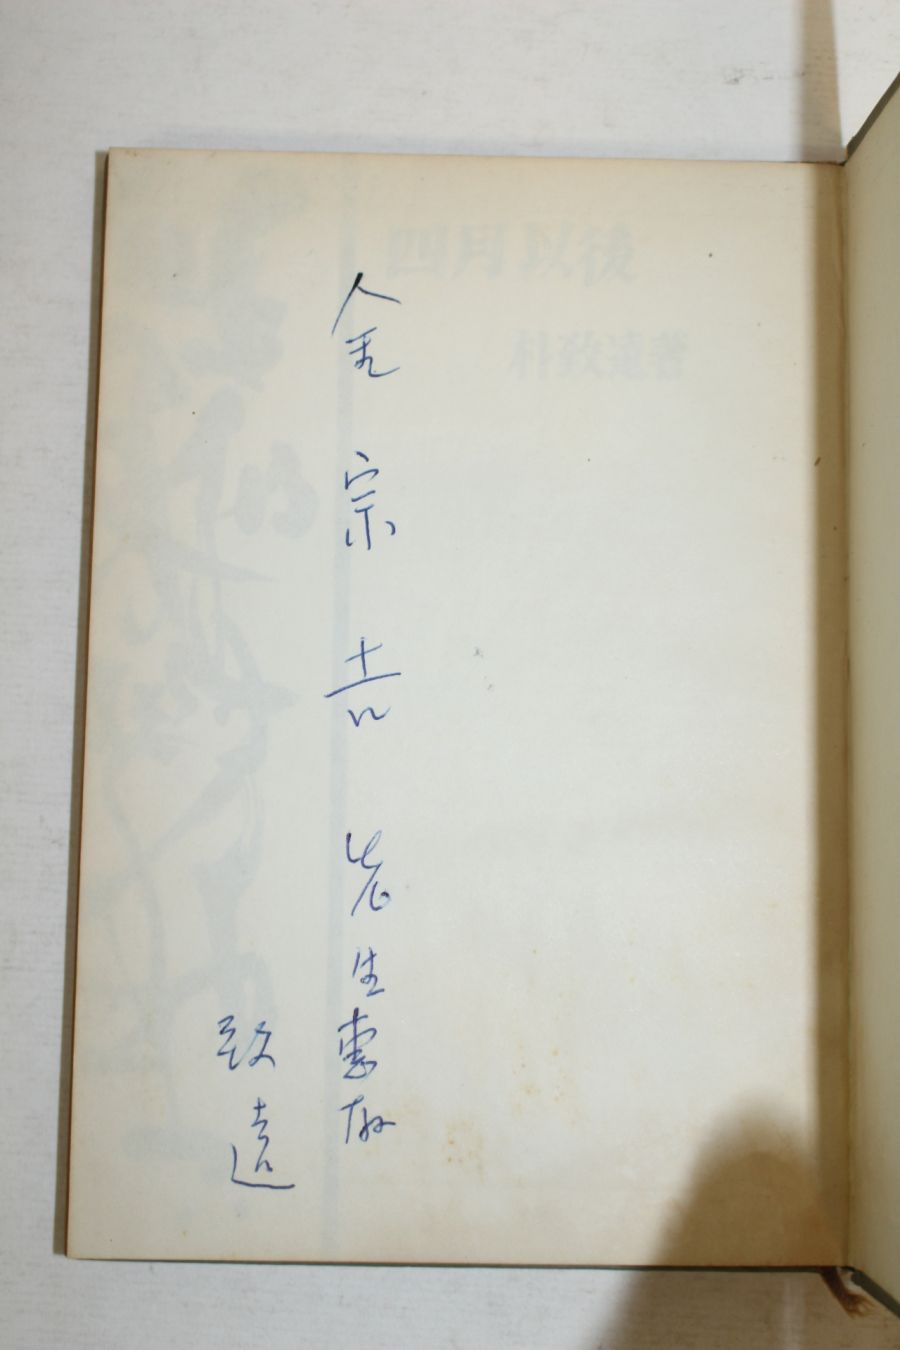 四月以後
朴致遠著
金宗吉 先生惠存
致遠